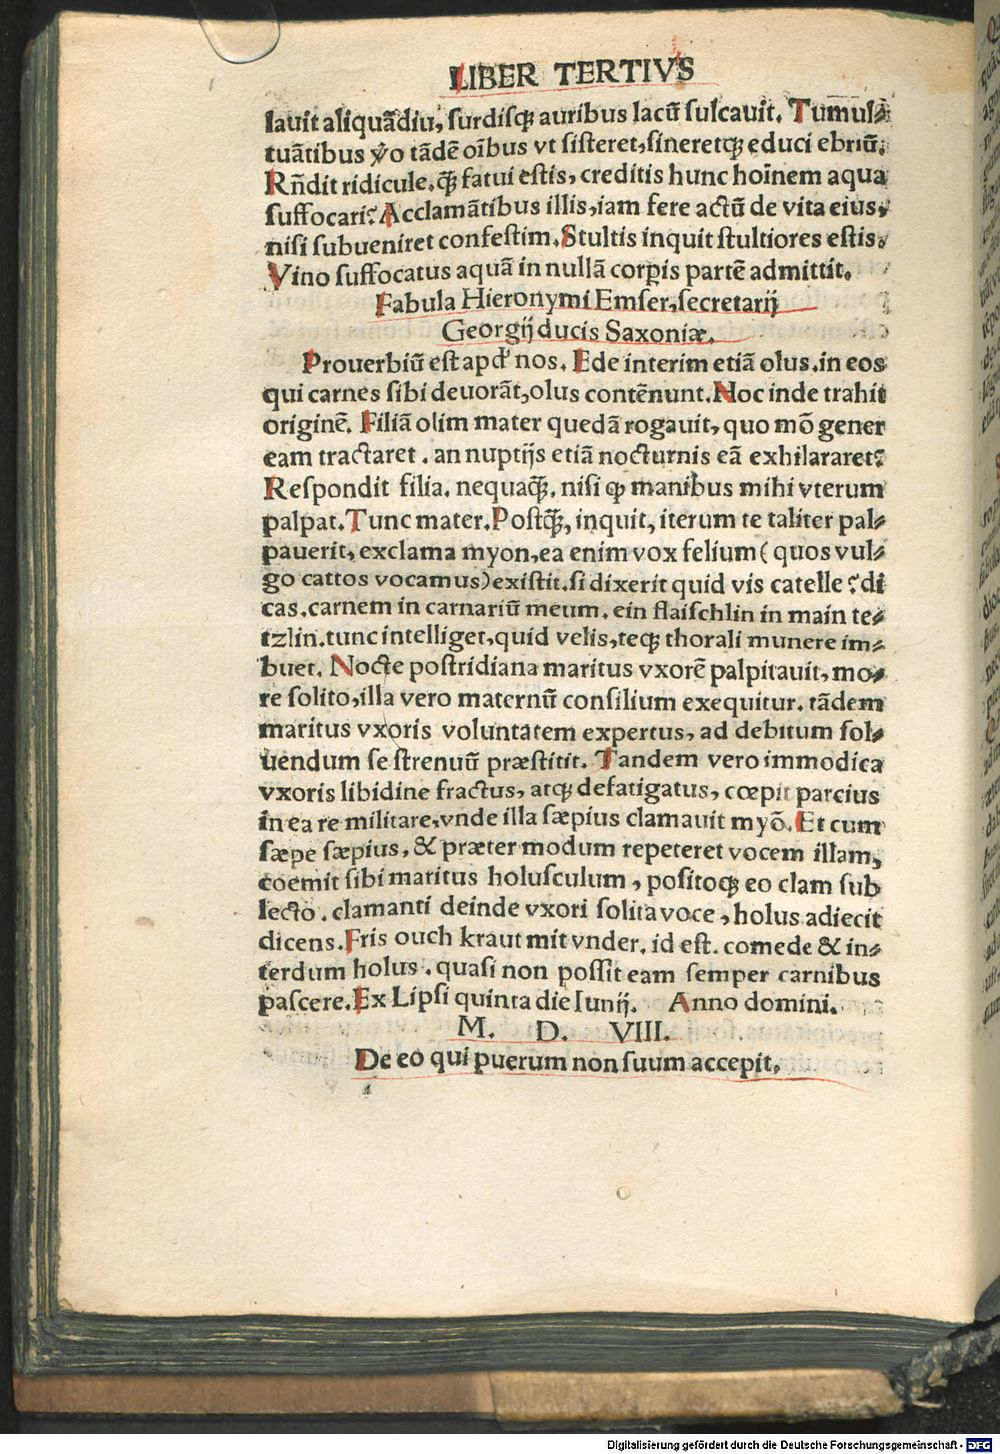 LIBER TERTIVS
lauit aliquãdiu, surdisqȝ auribus lacũ sulcauit. Tumul⸗
tuãtibus ꝟo tãdẽ oĩbus vt sisteret, sineretqȝ educi ebriũ.
Rñdit ridicule. qȝ̃ fatui estis, creditis hunc hoĩnem aqua
suffocari? Acclamãtibus illis, iam fere actũ de vita eius,
nisi subueniret confestim. Stultis inquit stultiores estis.
Vino suffocatus aquã in nullã corꝑis partẽ admittit.
Fabula Hieronymi Emser, secretarij
Georgij ducis Saxoniæ.
Prouerbiũ est apđ nos. Ede interim etiã olus. in eos
qui carnes sibi deuorãt, olus contẽnunt. Noc inde trahit
originẽ. Filiã olim mater quedã rogauit, quo mõ gener
eam tractaret. an nuptijs etiã nocturnis eã exhilararet?
Respondit filia. nequaqȝ̃. nisi ꝙ manibus mihi vterum
palpat. Tunc mater. Postqȝ̃, inquit, iterum te taliter pal⸗
pauerit, exclama myon, ea enim vox felium (quos vul⸗
go cattos vocamus) existit. si dixerit quid vis catelle? di
cas. carnem in carnariũ meum. ein flaischlin in main te⸗
tzlin. tunc intelliget, quid velis, teqȝ thorali munere im⸗
buet. Nocte postridiana maritus vxorẽ palpitauit, mo⸗
re solito, illa vero maternũ consilium exequitur. tãdem
maritus vxoris voluntatem expertus, ad debitum sol⸗
uendum se strenuũ præstitit. Tandem vero immodica
vxoris libidine fractus, atqȝ defatigatus, cœpit parcius
in ea re militare, vnde illa sæpius clamauit myõ. Et cum
sæpe sæpius, & præter modum repeteret vocem illam,
coemit sibi maritus holusculum, positoqȝ eo clam sub
lecto. clamanti deinde vxori solita voce, holus adiecit
dicens. Fris ouch kraut mit vnder. id est. comede & in⸗
terdum holus. quasi non possit eam semper carnibus
pascere. Ex Lipsi quinta die Iunij. Anno domini.
M. D. VIII.
De eo qui puerum non suum accepit.
Digitalisierung gefördert durch die Deutsche Forschungsgemeinschaft - DFG